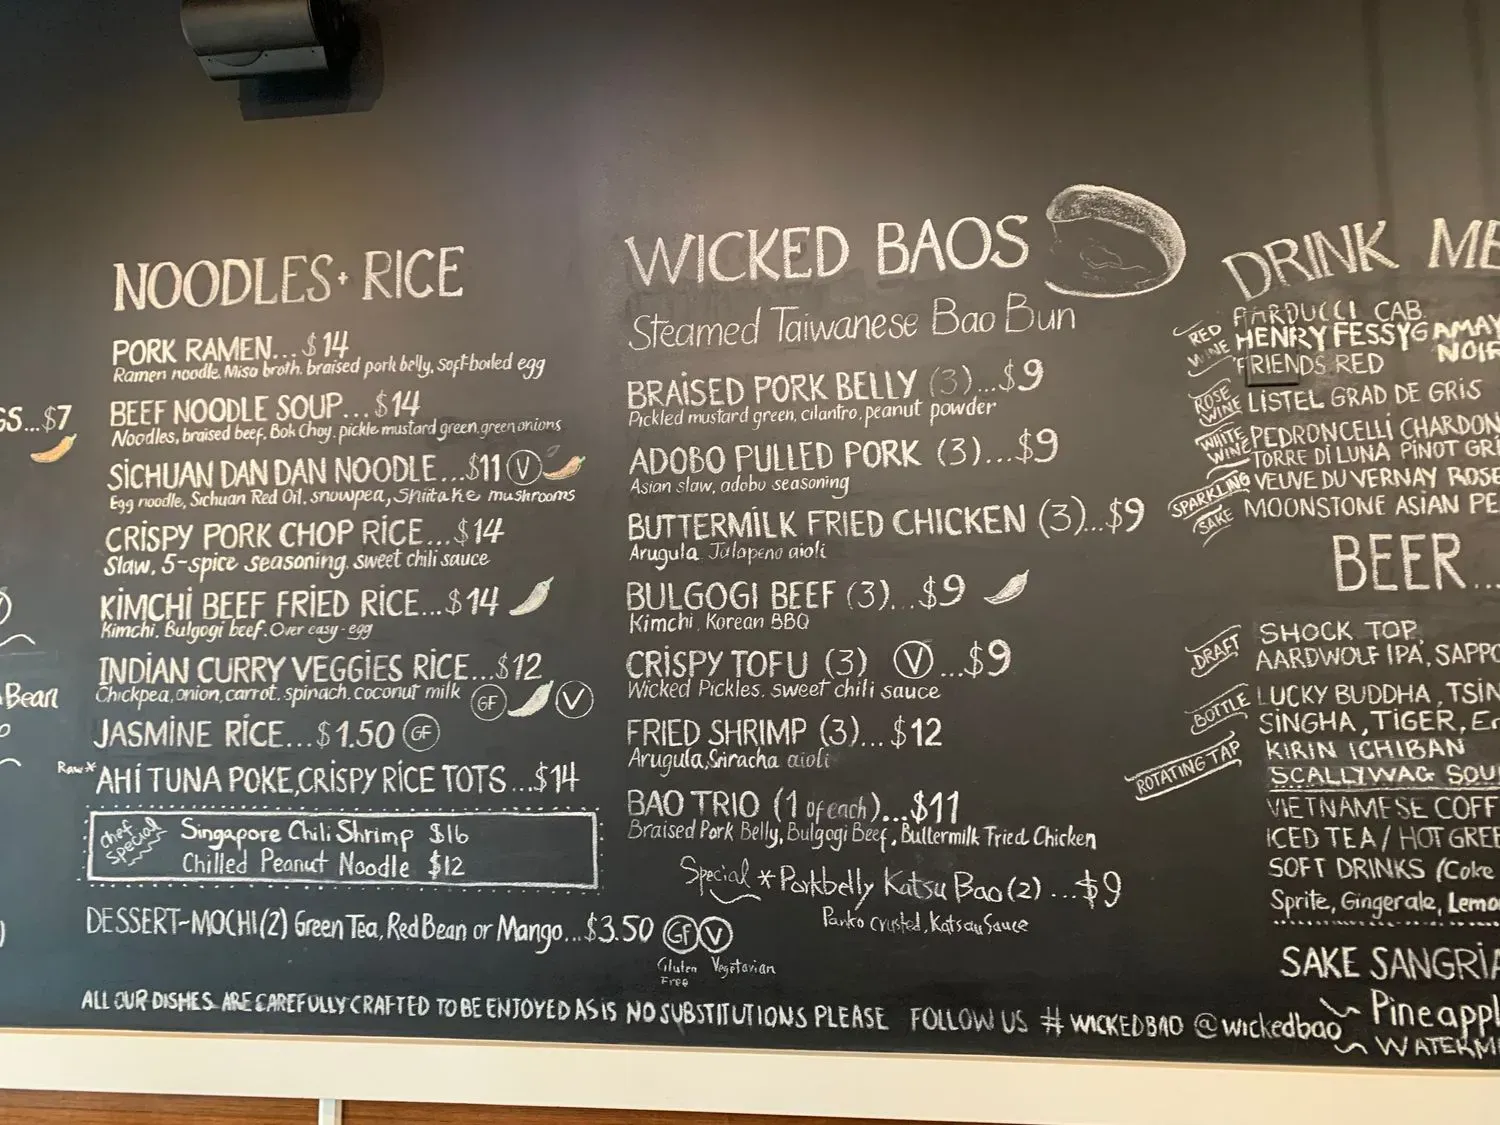 SS...$7
Bean
NOODLES + RICE
PORK RAMEN...$14
Ramen noodle. Miso broth. braised pork belly, soft-boiled egg
BEEF NOODLE SOUP...$14
Noodles, braised beef, Bok Choy, pickle mustard green, green onions
SICHUAN DAN DAN NOODLE...$11 V
Egg noodle, Sichuan Red Oil, snowpea, Shiitake mushrooms
CRISPY PORK CHOP RICE...$14
Slaw, 5-spice seasoning, sweet chili sauce
KIMCHI BEEF FRIED RICE...$14
Kimchi, Bulgogi beef. Over easy-egg
INDIAN CURRY VEGGIES RICE...$12
Chickpea, onion, carrot, spinach, coconut milk GF V
JASMINE RICE...$1.50 GF
Raw* AHI TUNA POKE, CRISPY RICE TOTS...$14
Chef Special
Singapore Chili Shrimp $16
Chilled Peanut Noodle $12
DESSERT-MOCHI (2) Green Tea, Red Bean or Mango...$3.50 GF V
Gluten Free Vegetarian
WICKED BAOS
Steamed Taiwanese Bao Bun
BRAISED PORK BELLY (3)...$9
Pickled mustard green, cilantro, peanut powder
ADOBO PULLED PORK (3)...$9
Asian slaw, adobo seasoning
BUTTERMILK FRIED CHICKEN (3)...$9
Arugula, Jalapeno aioli
BULGOGI BEEF (3)...$9
Kimchi, Korean BBQ
CRISPY TOFU (3) V...$9
Wicked Pickles, sweet chili sauce
FRIED SHRIMP (3)...$12
Arugula, Sriracha aioli
BAO TRIO (1 of each)...$11
Braised Pork Belly, Bulgogi Beef, Buttermilk Fried Chicken
Special *Porkbelly Katsu Bao (2)...$9
Panko crusted, Katsu Sauce
DRINK ME
RED WINE
CAB
HENRY FESSY GAMAY NOIR
FRIENDS RED
ROSE WINE LISTEL GRAD DE GRIS
WHITE WINE PEDRONCELLI CHARDON
TORRE DI LUNA PINOT GRI
SPARKLING VEUVE DU VERNAY ROSE
SAKE MOONSTONE ASIAN PE
BEER...
DRAFT SHOCK TOP
AARDWOLF IPA, SAPPO
BOTTLE LUCKY BUDDHA, TSIN
SINGHA, TIGER, Er
KIRIN ICHIBAN
ROTATING TAP SCALLYWAG SOU
VIETNAMESE COFF
ICED TEA / HOT GREE
SOFT DRINKS (Coke
Sprite, Gingerale, Lemo
SAKE SANGRIA
Pineappl
WATERM
ALL OUR DISHES ARE CAREFULLY CRAFTED TO BE ENJOYED AS IS NO SUBSTITUTIONS PLEASE FOLLOW US #WICKEDBAO @wickedbao